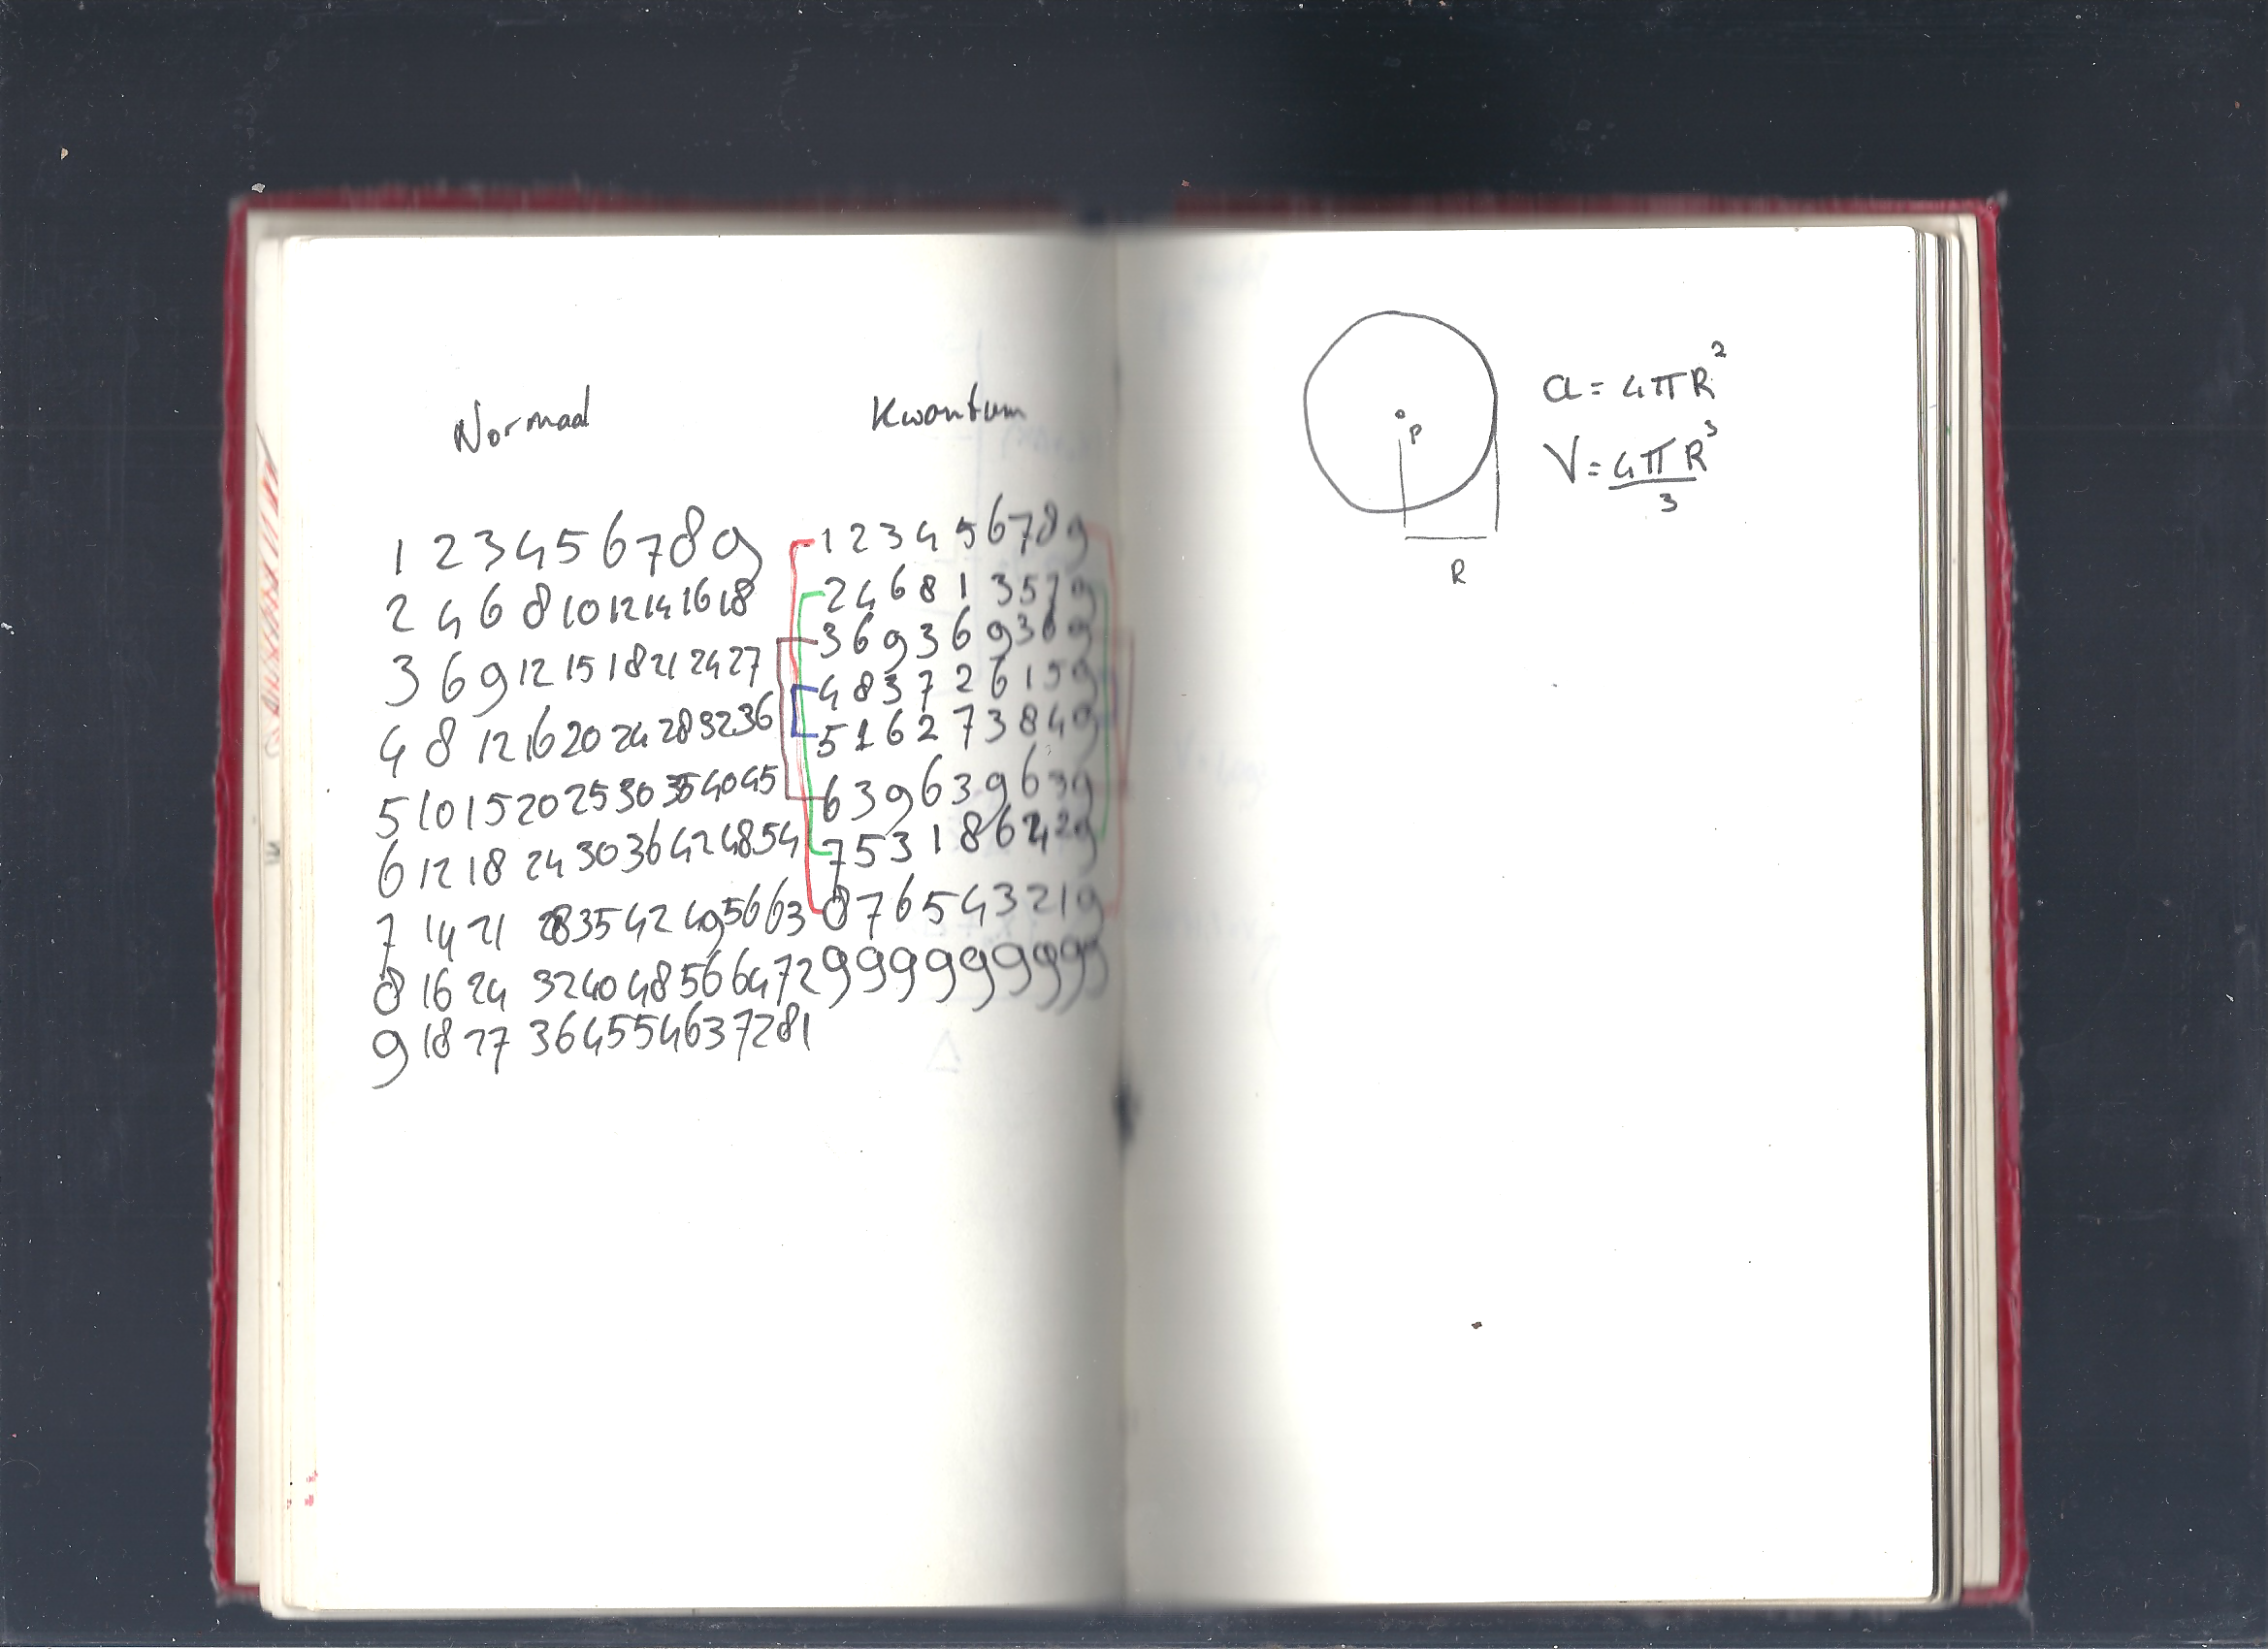 Normaal
1 2 3 4 5 6 7 8 9
2 4 6 8 10 12 14 16 18
3 6 9 12 15 18 21 24 27
4 8 12 16 20 24 28 32 36
5 10 15 20 25 30 35 40 45
6 12 18 24 30 36 42 48 54
7 14 21 28 35 42 49 56 63
8 16 24 32 40 48 56 64 72
9 18 27 36 45 54 63 72 81
Kwantum
1 2 3 4 5 6 7 8 9
2 4 6 8 1 3 5 7 9
3 6 9 3 6 9 3 6 9
4 8 3 7 2 6 1 5 9
5 1 6 2 7 3 8 4 9
6 3 9 6 3 9 6 3 9
7 5 3 1 8 6 4 2 9
8 7 6 5 4 3 2 1 9
9 9 9 9 9 9 9 9 9
P
R
a = 4πR²
V = 4πR³
3